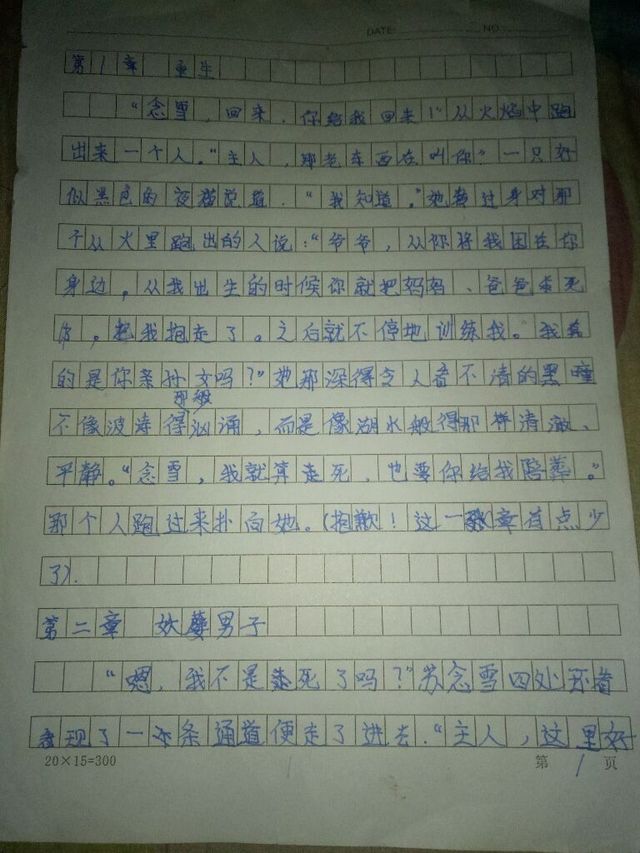 DATE: NO
第1章 重生
“念雪，回来，你给我回来！”从火焰中跑
出来一个人。“主人，那老东西在叫你”一只好
似黑色的夜猫说道，“我知道。”她转过身对那
个从火里跑出的人说：“爷爷，从你将我困在你
身边，从我出生的时候你就把妈妈、爸爸杀死
，把我抱走了。之后就不停地训练我。我真
的是你亲孙女吗？”她那深得令人看不清的黑瞳
不像波涛那般得汹涌，而是像湖水般得那样清澈、
平静。“念雪，我就算走死，也要你给我陪葬。”
那个人跑过来扑向她。(抱歉！这一章有点少
了).
第二章 妖孽男子
“嗯，我不是走死了吗？”苏念雪四处环看
发现了一条通道便走了进去.“主人，这里好
20×15=300 第1页